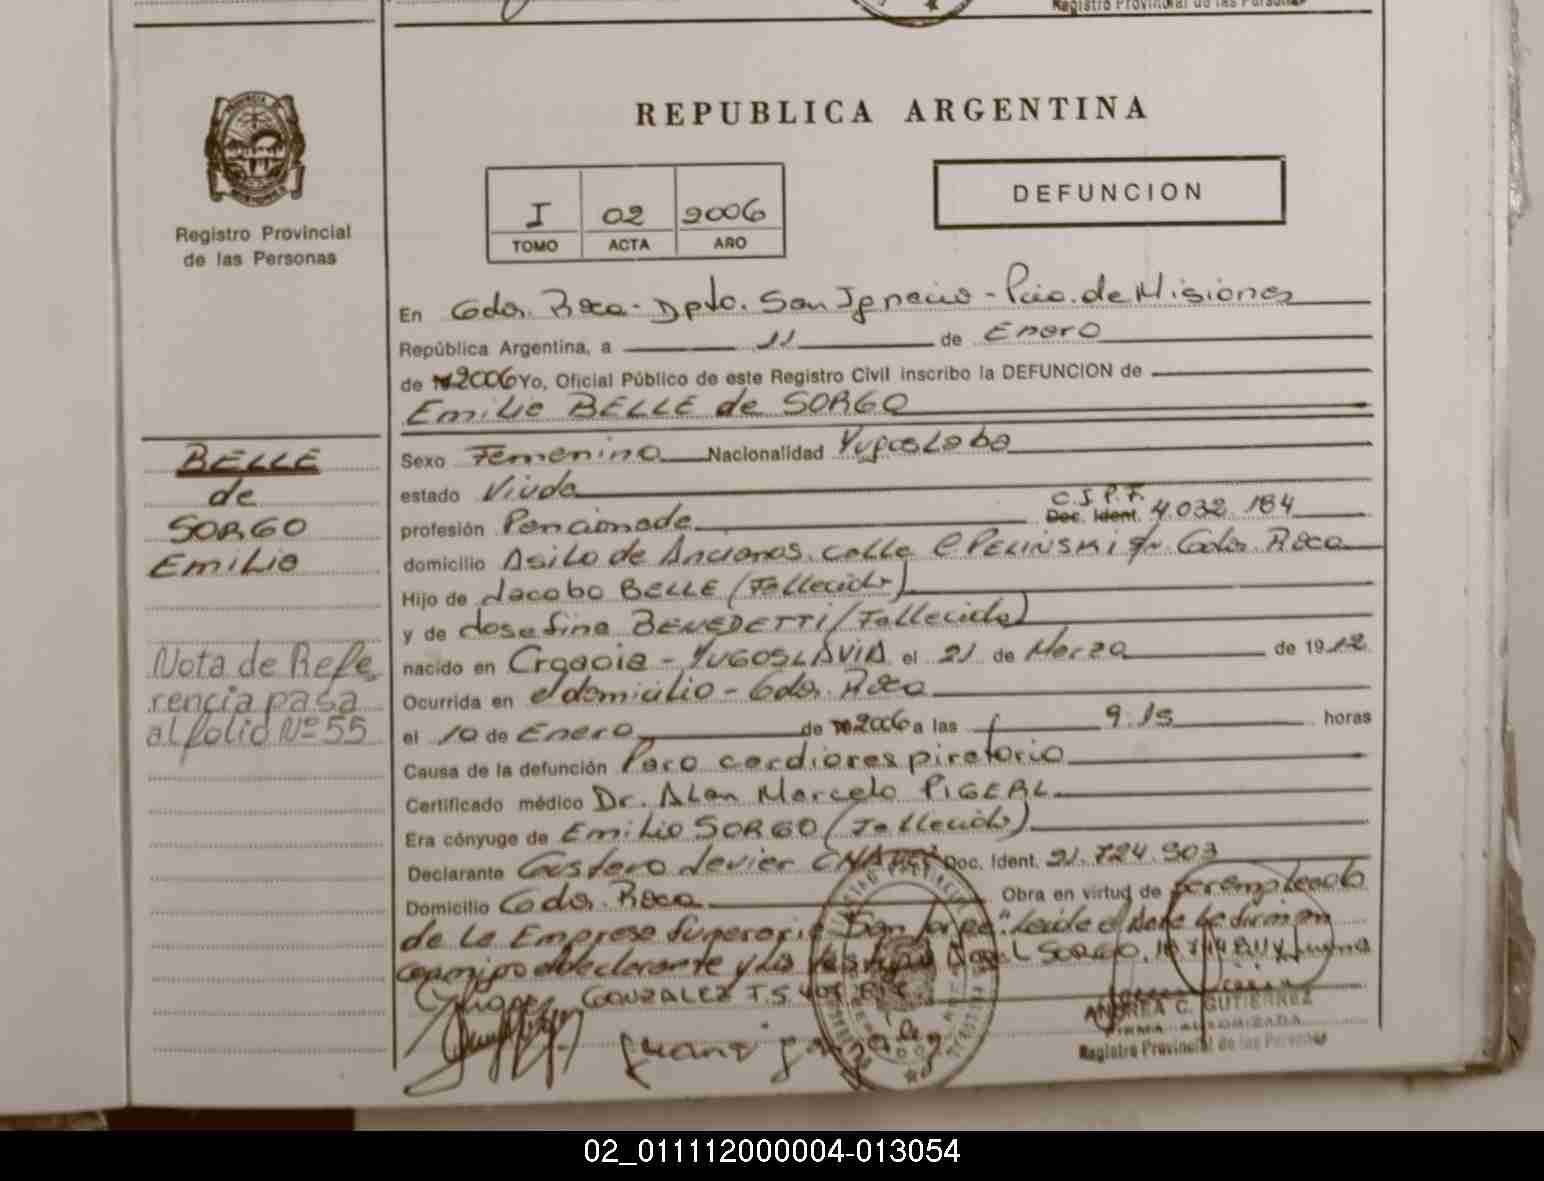 Registro Provincial de las Personas
Registro Provincial
de las Personas
REPUBLICA ARGENTINA
I 02 2006
TOMO ACTA AÑO
DEFUNCION
En Gdor. Roca - Dpto. San Ignacio - Pcia. de Misiones
República Argentina, a 11 de Enero
de 2006 Yo, Oficial Público de este Registro Civil inscribo la DEFUNCION de
Emilia BELLE de SORGO
BELLE
de
SORGO
Emilia
Nota de Refe
rencia pasa
al folio Nº 55
Sexo Femenino Nacionalidad Yugoslaba
estado Viuda
profesión Pensionada C.I.P.F. Doc. Ident. 4.032.184
domicilio Asilo de Ancianos. calle Gdor. Roca
Hijo de Jacobo BELLE (Fallecido)
y de Josefina BENEDETTI (Fallecida)
nacido en Croacia - YUGOSLAVIA el 21 de Marzo de 1912
Ocurrida en el domicilio - Gdor. Roca
el 10 de Enero de 2006 a las 9:15 horas
Causa de la defunción Paro cardiorespiratorio
Certificado médico Dr. Alan Marcelo PIGERL
Era cónyuge de Emilio SORGO (Fallecido)
Declarante Gustavo Javier Doc. Ident. 21.724.903
Domicilio Gdor. Roca Obra en virtud de ser empleado
de la Empresa funeraria "San Jorge". Leída el acta la firman
conmigo el declarante y los testigos SORGO,
GONZALEZ
ANDREA C. GUTIERREZ
FIRMA AUTORIZADA
Registro Provincial de las Personas
02_011112000004-013054